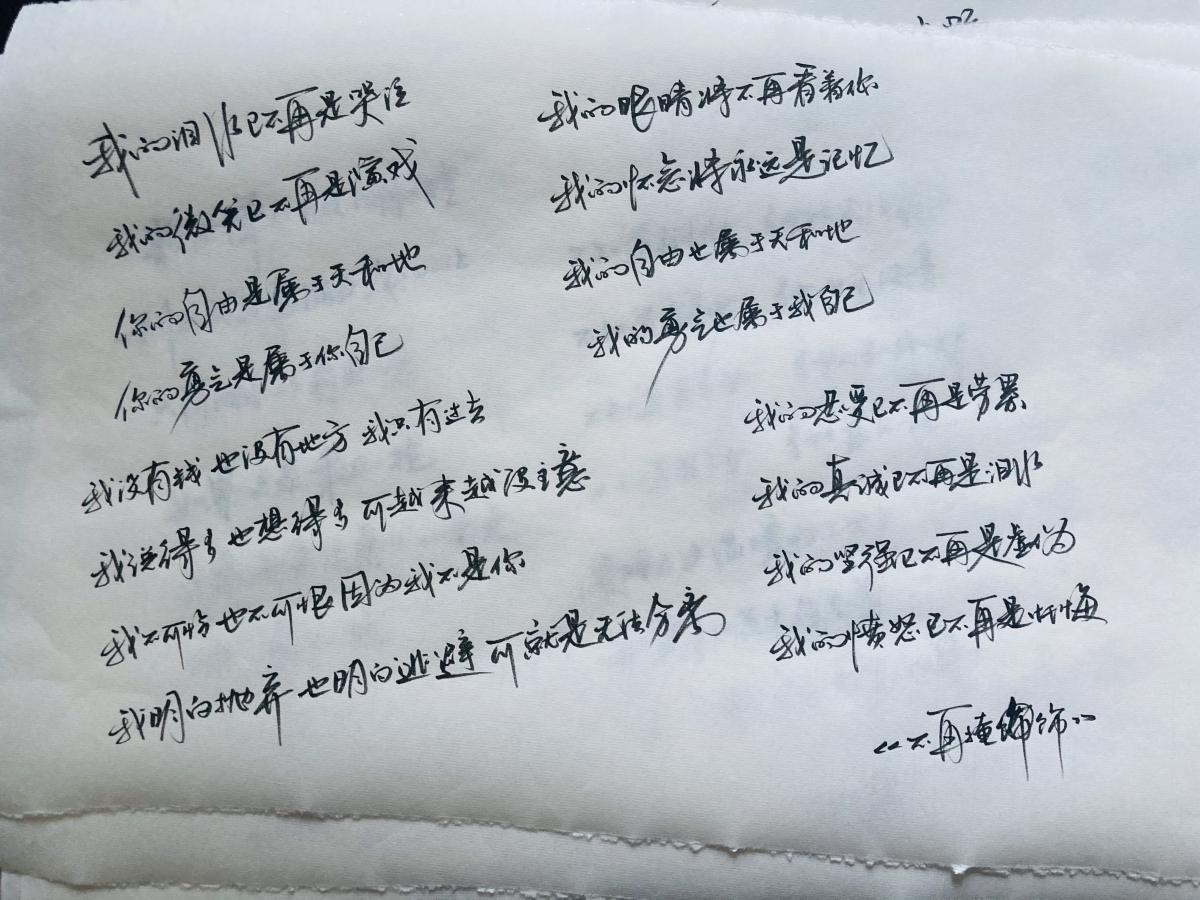 我的泪水已不再是哭泣
我的微笑已不再是演戏
你的自由是属于天和地
你的勇气是属于你自己
我没有钱也没有地方 我只有过去
我说得多也想得多 可越来越没主意
我不可怜也不可恨 因为我不是你
我明白抛弃也明白逃避 可就是无法分离
我的眼睛将不再看着你
我的怀念将永远是记忆
我的自由也属于天和地
我的勇气也属于我自己
我的忍受已不再是劳累
我的真诚已不再是泪水
我的坚强已不再是虚伪
我的愤怒已不再是忏悔
<<不再掩饰>>